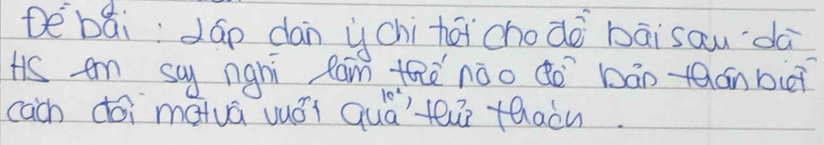 Đề bài: Lập dàn ý chi tiết cho đề bài sau: dà
HS em suy nghĩ làm thế nào để bản thân biết
cách đối mặt và vượt qua thử thách.